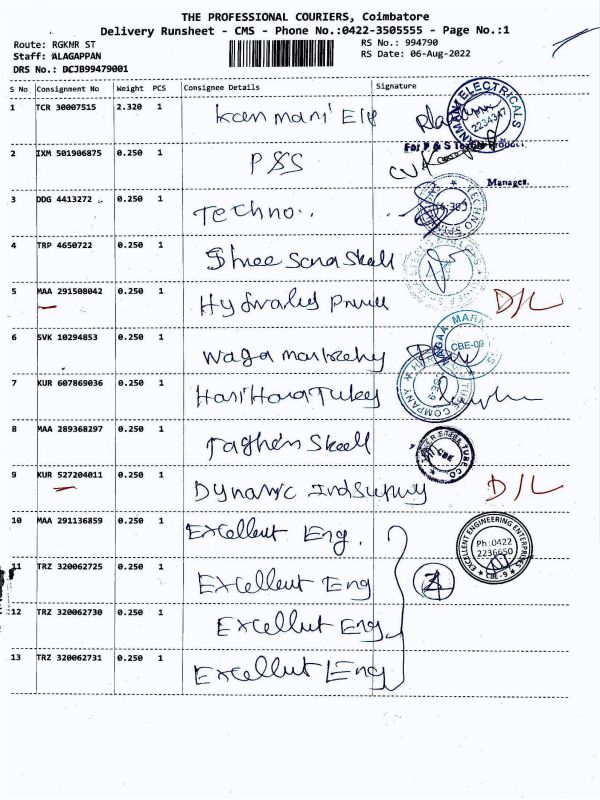 THE PROFESSIONAL COURIERS, Coimbatore
Delivery Runsheet - CMS - Phone No.:0422-3505555 - Page No.:1
Route: RGKNR ST RS No.: 994790
Staff: ALAGAPPAN RS Date: 06-Aug-2022
DRS No.: DCJB99479001
S No Consignment No Weight PCS Consignee Details Signature
1 TCR 30007515 2.320 1 Kanmani Ele
ELECTRICALS
2234347
For P & S Textile Product,
2 IXM 501906875 0.250 1 P&S
Manager.
3 DDG 4413272 0.250 1 Techno..
TECHNO
4 TRP 4650722 0.250 1 Shree Sona Skell
5 MAA 291508042 0.250 1 D/L
MARK
CBE-09
6 SVK 10294853 0.250 1
7 KUR 607869036 0.250 1 Hari Hara Tubes
COMPANY
8 MAA 289368297 0.250 1
TUBE CO
CBE
9 KUR 527204011 0.250 1 Dynamic D/L
10 MAA 291136859 0.250 1 Excellent Eng.
EXCELLENT ENGINEERING ENTERPRISES
Ph:0422
2236650
CBE-9
11 TRZ 320062725 0.250 1 Excellent Eng
12 TRZ 320062730 0.250 1 Excellut Eng
13 TRZ 320062731 0.250 1 Excellut Eng